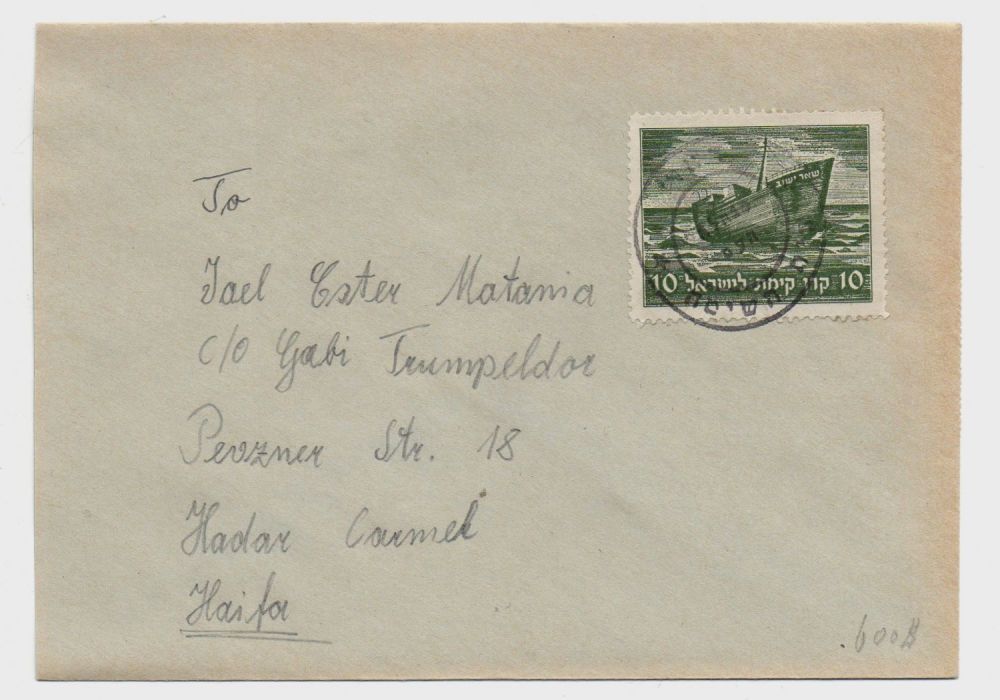 שאר ישוב
10 קרן קימת לישראל 10
To
Jael Ester Matania
c/o Gabi Trumpeldor
Pevzner Str. 18
Hadar Carmel
Haifa